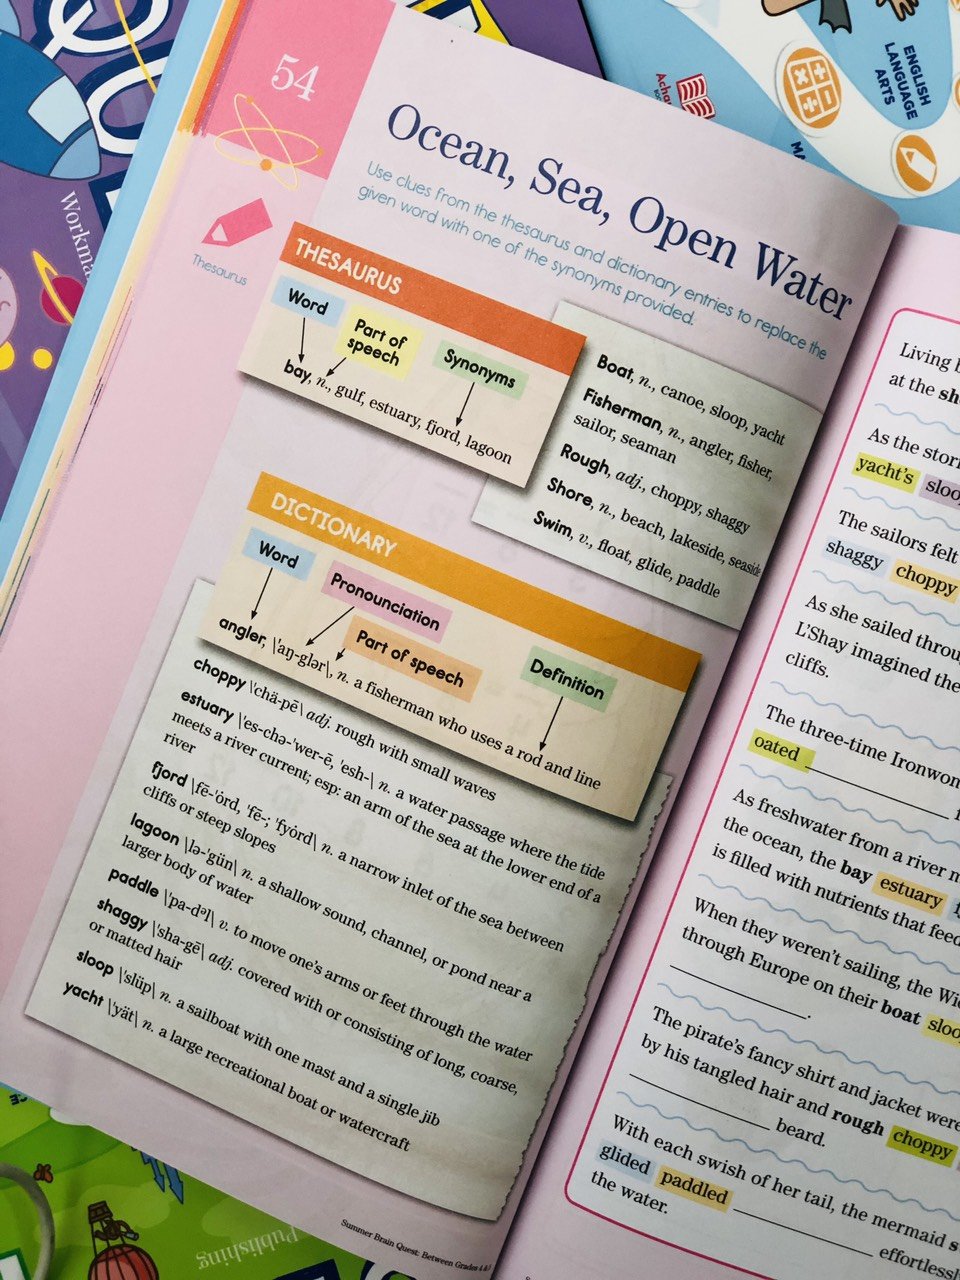 54
Ocean, Sea, Open Water
Use clues from the thesaurus and dictionary entries to replace the
given word with one of the synonyms provided.
Thesaurus
THESAURUS
Word
Part of
speech
Synonyms
bay, n., gulf, estuary, fjord, lagoon
Boat, n., canoe, sloop, yacht
Fisherman, n., angler, fisher,
sailor, seaman
Rough, adj., choppy, shaggy
Shore, n., beach, lakeside, seaside
Swim, v., float, glide, paddle
DICTIONARY
Word
Pronounciation
Part of speech
Definition
angler, \ˈaŋ-glər\, n. a fisherman who uses a rod and line
choppy \ˈchä-pē\ adj. rough with small waves
estuary \ˈes-chə-ˈwer-ē, ˈesh-\ n. a water passage where the tide
meets a river current; esp: an arm of the sea at the lower end of a
river
fjord \fē-ˈȯrd, ˈfē-; ˈfyȯrd\ n. a narrow inlet of the sea between
cliffs or steep slopes
lagoon \lə-ˈgün\ n. a shallow sound, channel, or pond near a
larger body of water
paddle \ˈpa-dᵊl\ v. to move one's arms or feet through the water
shaggy \ˈsha-gē\ adj. covered with or consisting of long, coarse,
or matted hair
sloop \ˈslüp\ n. a sailboat with one mast and a single jib
yacht \ˈyät\ n. a large recreational boat or watercraft
Summer Brain Quest: Between Grades 4 & 5
Living
at the
As the
yacht's
The sailors felt
shaggy choppy
As she sailed
L'Shay imagined the
cliffs.
The three-time
oated
As freshwater from a river
the ocean, the bay estuary
is filled with nutrients that feed
When they weren't sailing, the
through Europe on their boat
.
The pirate's fancy shirt and jacket were
by his tangled hair and rough choppy
beard.
With each swish of her tail, the mermaid
glided paddled effortlessly
the water.
ENGLISH
LANGUAGE
ARTS
Publishing